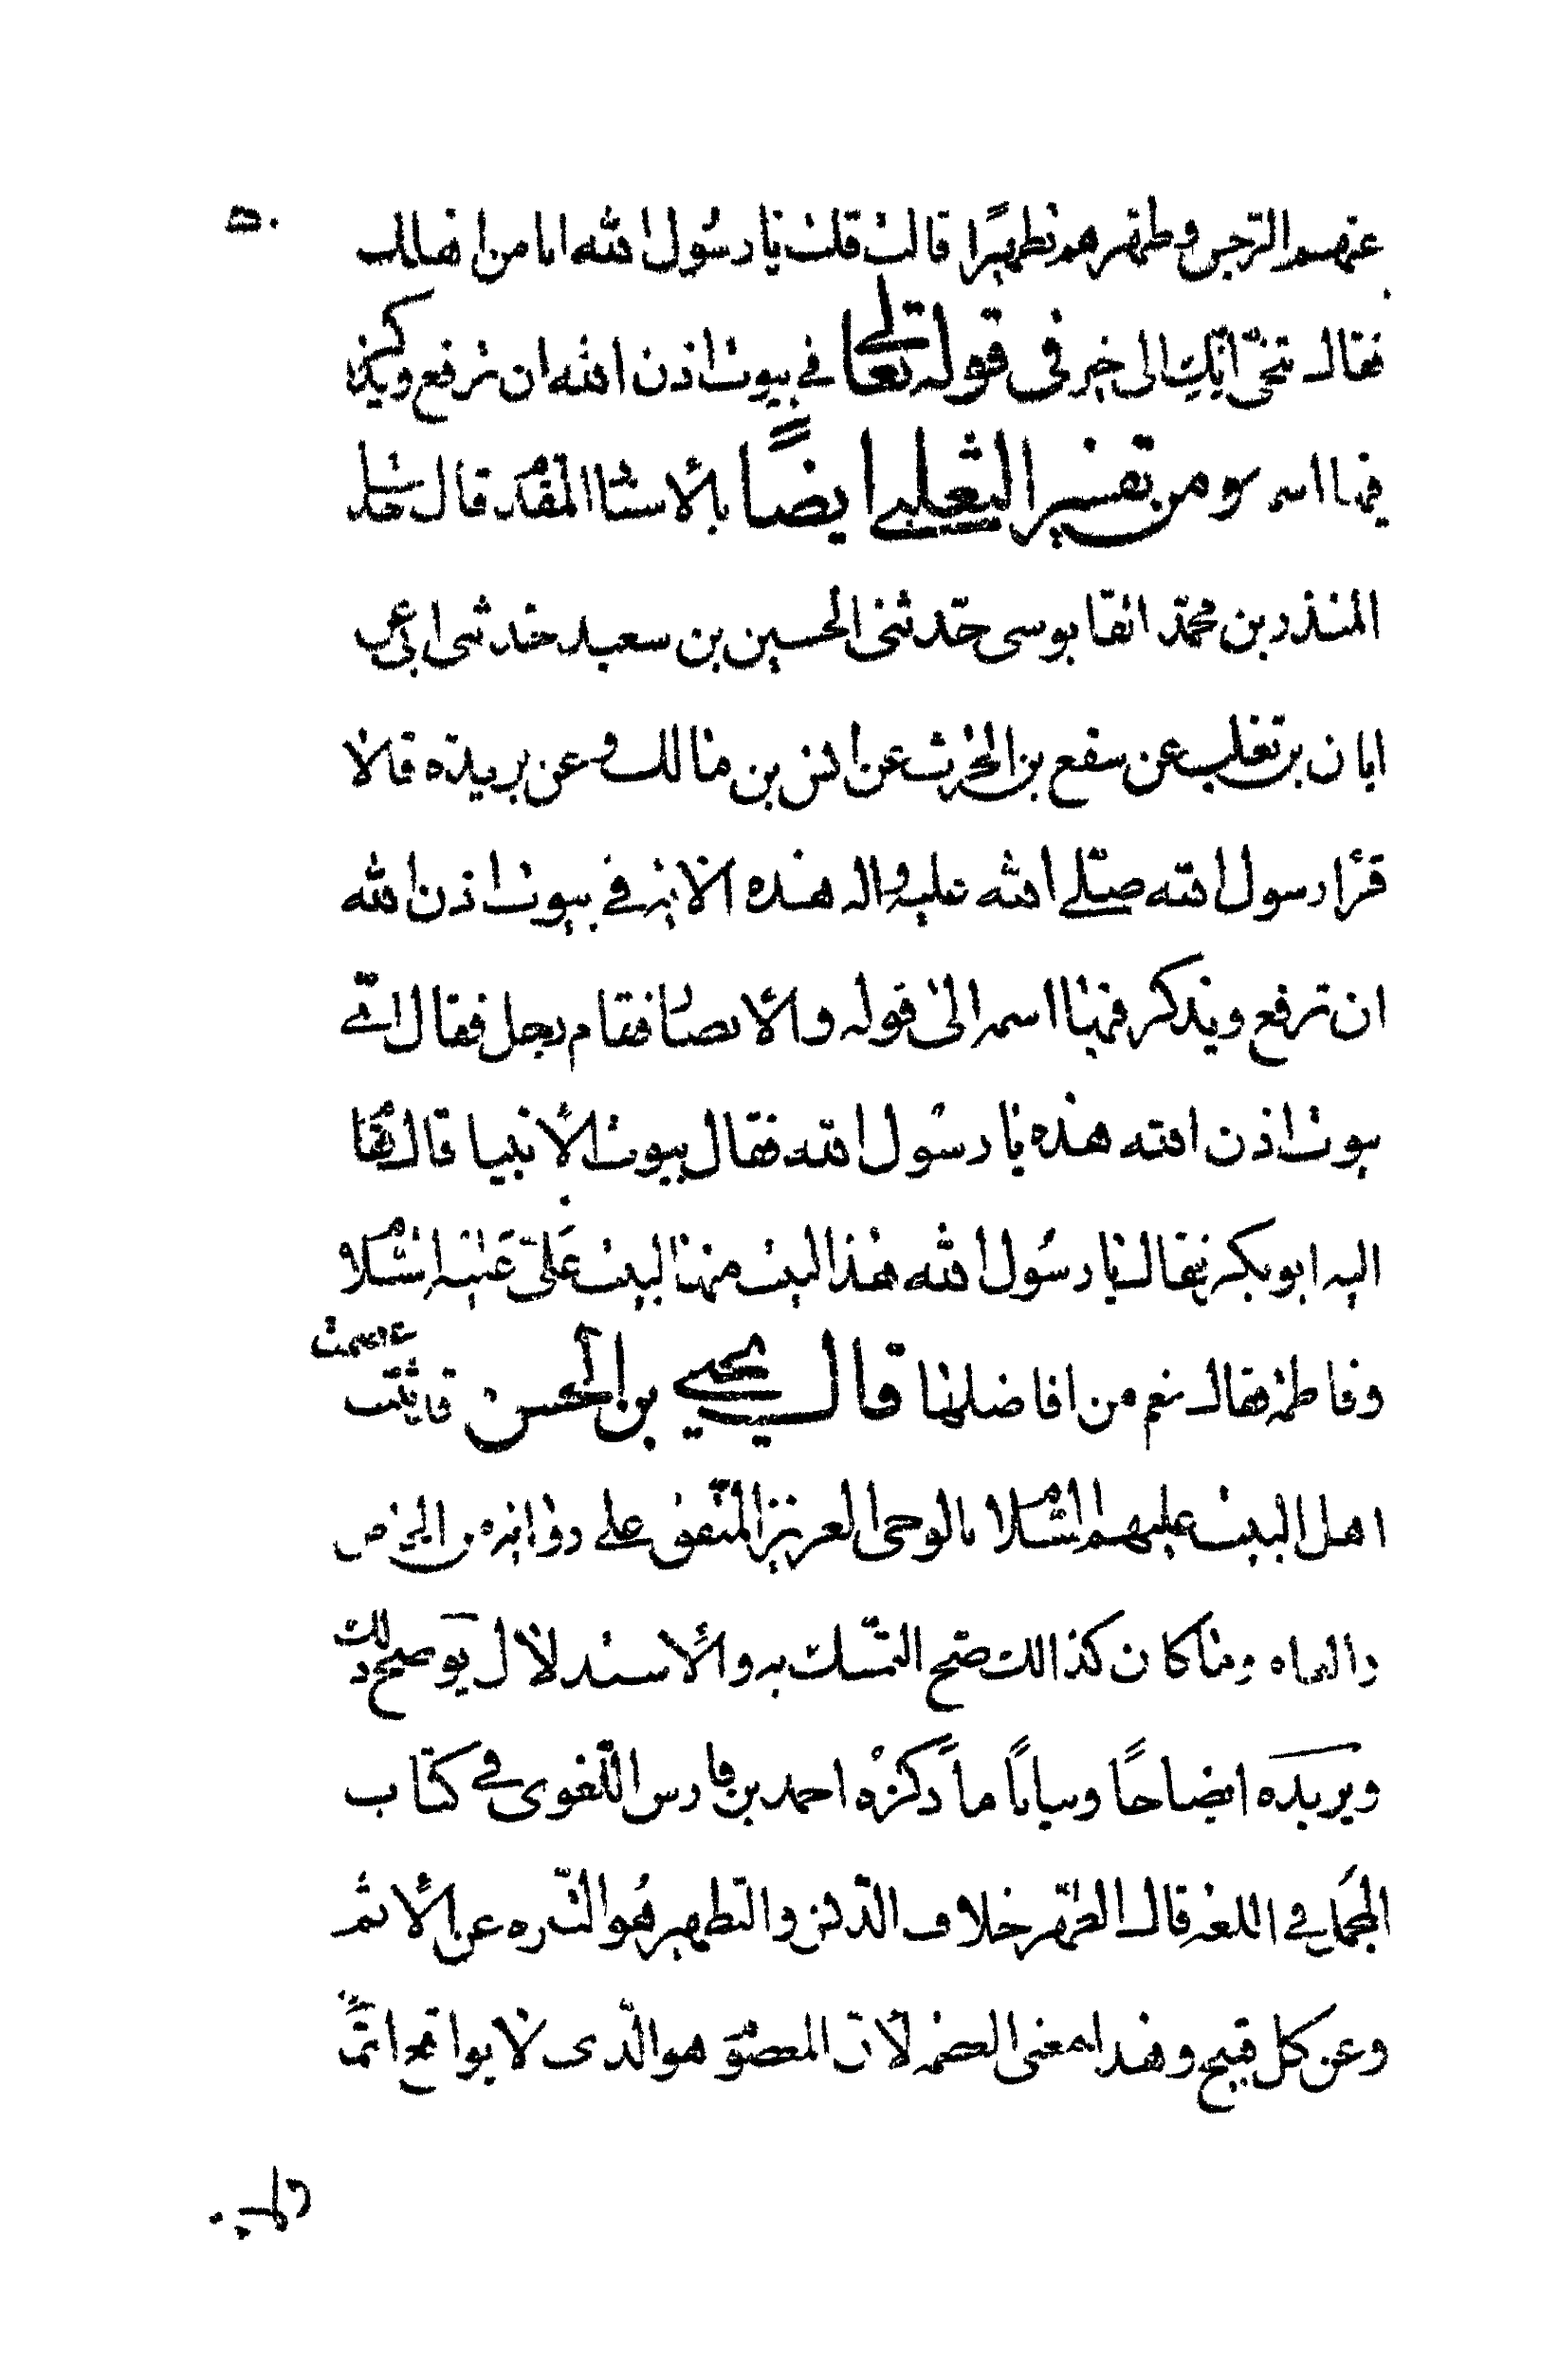 عنهم الرجس وطهرهم تطهيرًا قالت قلت يا رسول الله انا من اهلك
فقال تنحى انك الى خير فى قوله تعالى في بيوت اذن الله ان ترفع ويذكر
فيها اسمه ومن تفسير الثعلبي ايضًا بالاسناد المقدم قال حدثنا
المنذر بن محمّد القابوسى حدّثنى الحسين بن سعيد حدثنى ابى عن
ابان بن تغلب عن سفع بن الحرث عن انس بن مالك وعن بريده قالا
قرأ رسول الله صلّى الله عليه واله هذه الايه في بيوت اذن الله
ان ترفع ويذكر فيها اسمه الى قوله والابصار فقام رجل فقال اىّ
بيوت اذن الله هذه يا رسول الله فقال بيوت الأنبيا قال فقام
اليه ابو بكر فقال يا رسول الله هذا البيت منها لبيت على عليه السّلام
وفاطمه فقال نعم من افاضلها قال يحيى بن الحسن فاثبتت عصمت
اهل البيت عليهم السّلام بالوحى العزيز المتّفق على روايته من الخاص
والعامه وما كان كذالك صح التمسّك به والأستدلال يوضح ذلك
ويريده ايضاحًا وبيانًا ما ذكره احمد بن فارس اللّغوى في كتاب
المجمل في اللغه قال الطهر خلاف الدّنس والتطهير هو التنزه عن الأثم
وعن كل قبيح وهذا معنى العصمه لأن المعصوم هو الّذى لا يواقع اثمًا